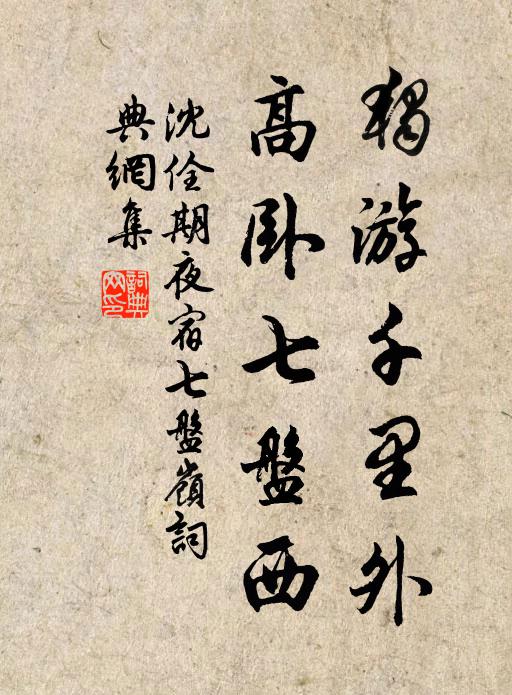 獨游千里外
高卧七盤西
沈佺期夜宿七盤嶺詞
典網集
詞典网印